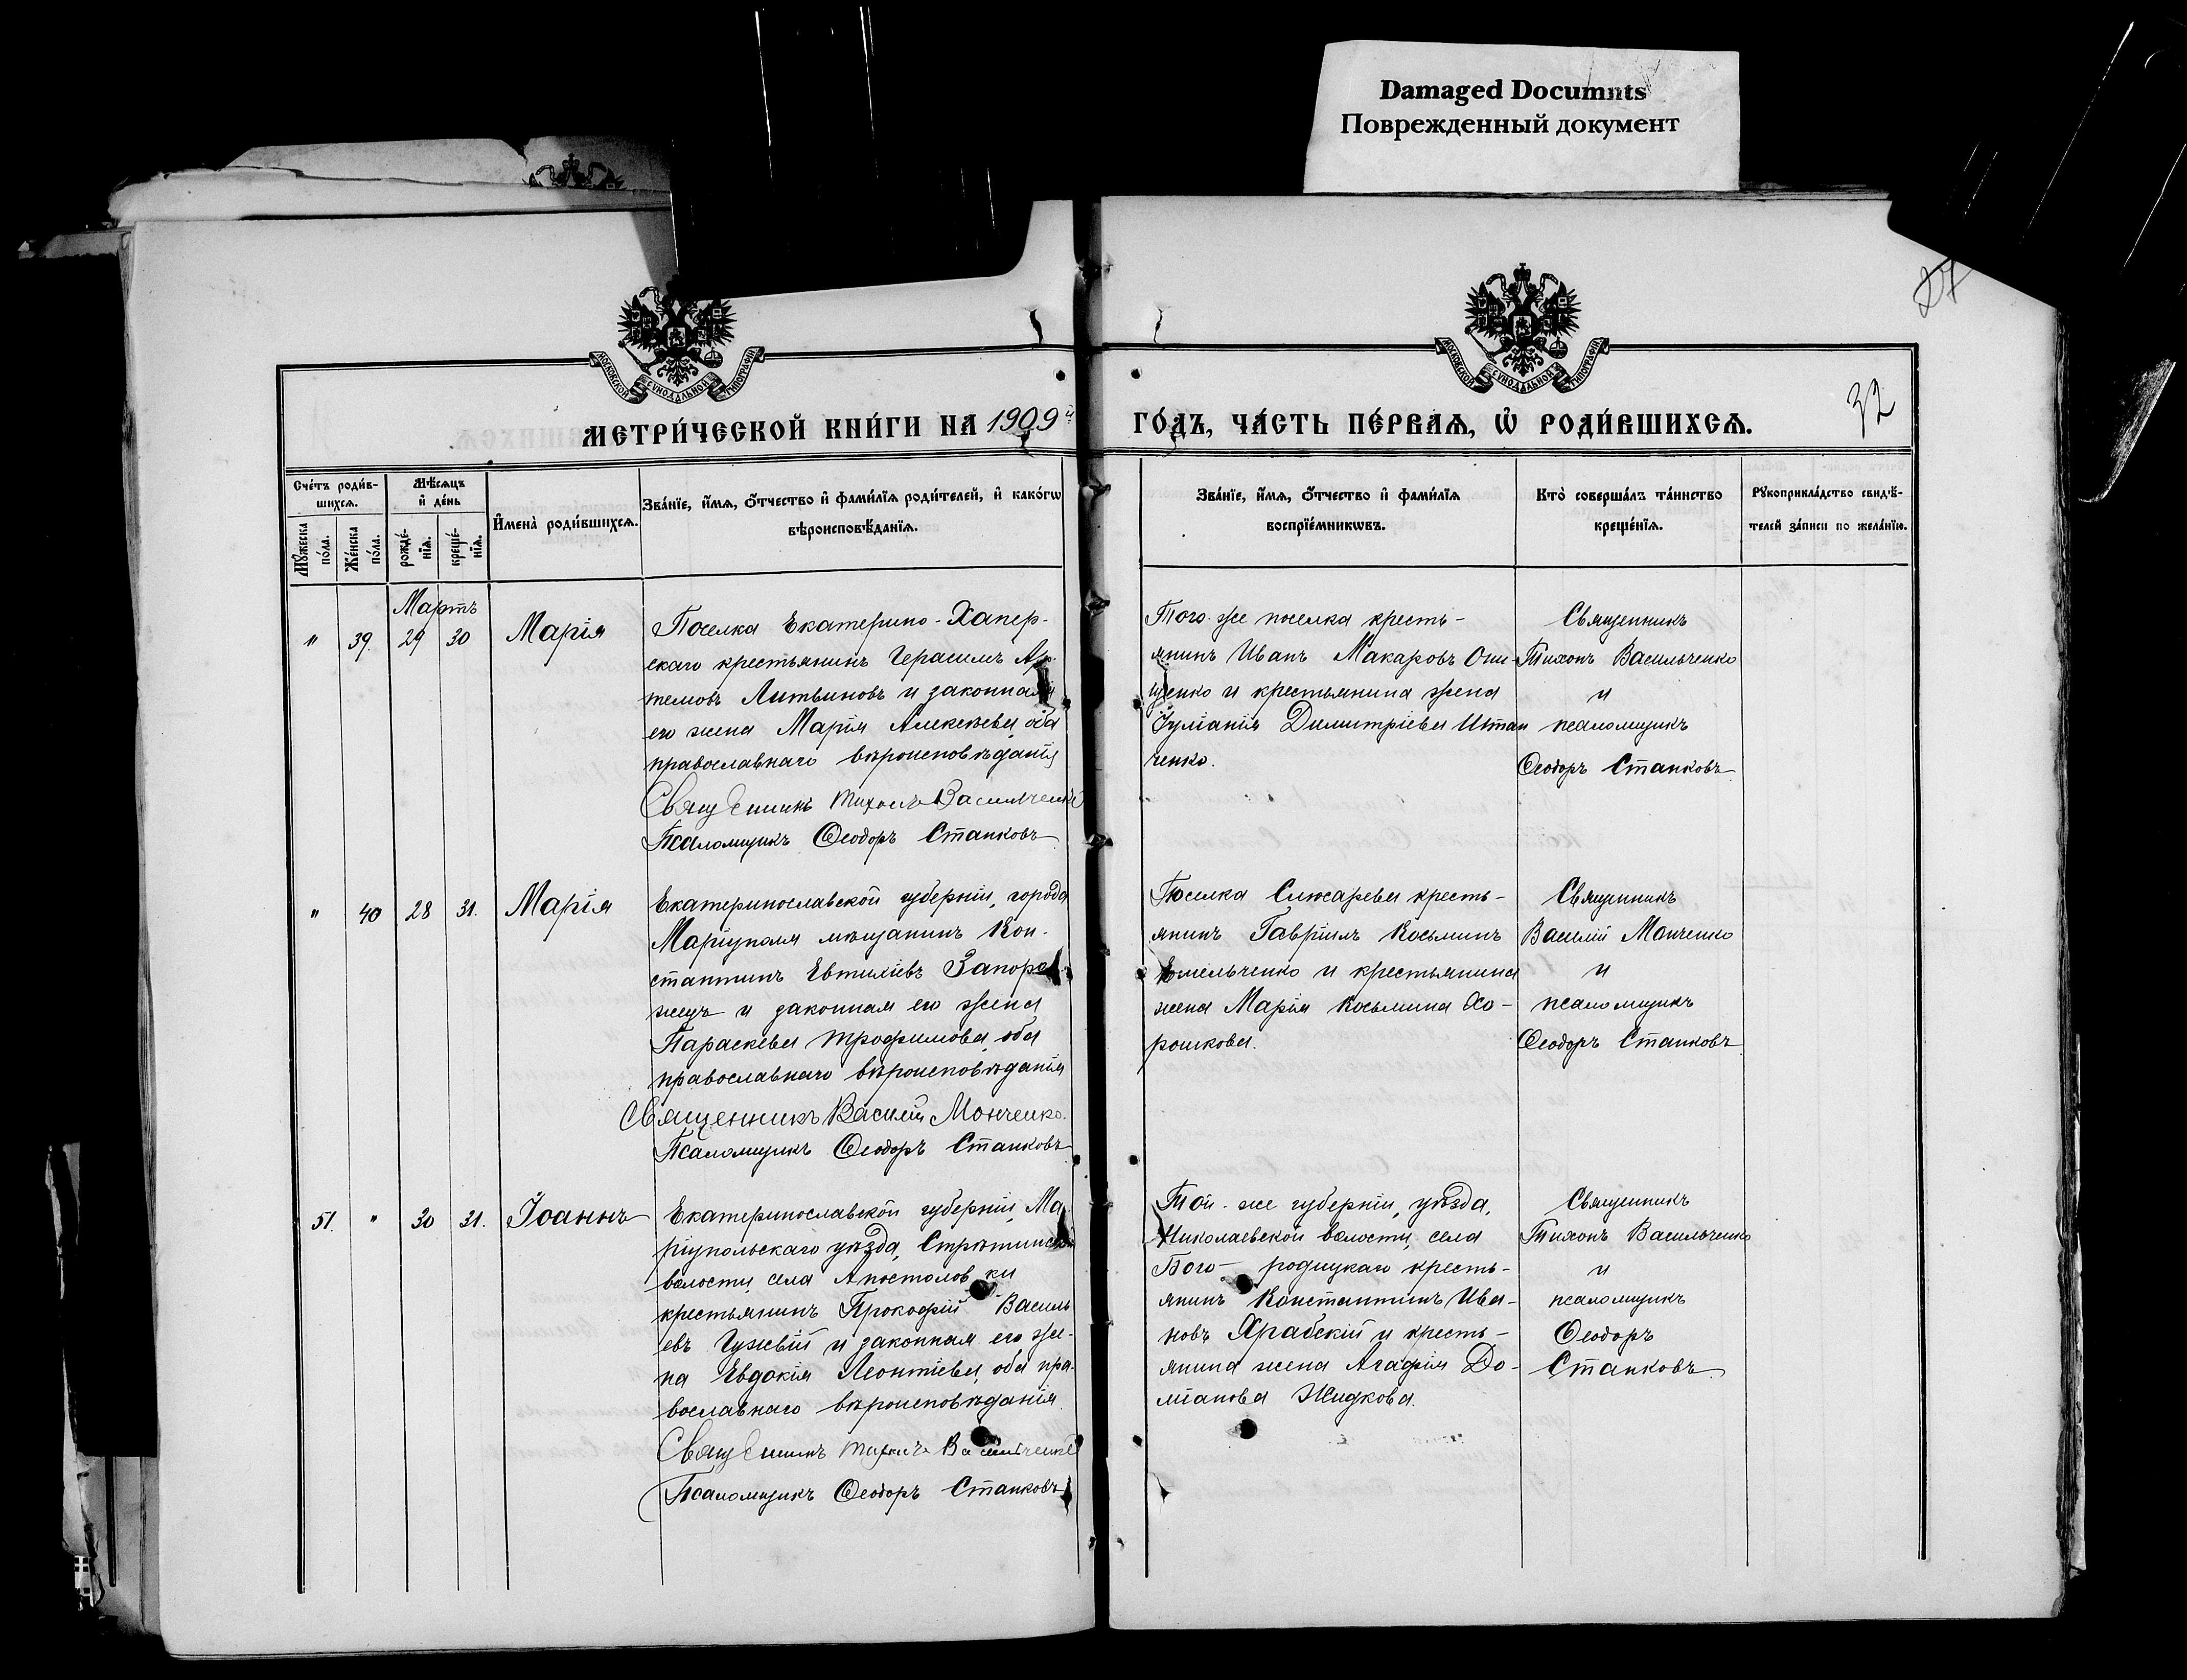 Damaged Documnts
Поврежденный документ
27
32
МОСКОВСКОЙ СѴНОДАЛЬНОЙ ТИПОГРАФІИ
МОСКОВСКОЙ СѴНОДАЛЬНОЙ ТИПОГРАФІИ
МЕТРИ́ЧЕСКОЙ КНИ́ГИ НА 1909й
ГО́ДЪ, ЧА́СТЬ ПЕ́РВАѦ, Ѡ҆ РОДИ́ВШИХСѦ.
Сче́тъ роди́в-
шихсѧ.
Мꙋ́жеска по́ла.
Же́нска по́ла.
Мѣ́сѧцъ
и҆ де́нь
рожде́-нїѧ.
креще́-нїѧ.
И҆мена̀ роди́вшихсѧ.
Зва́нїе, и҆́мѧ, ѻ҆́тчество и҆ фами́лїѧ роди́телей, и҆ како́гѡ
вѣроисповѣ́данїѧ.
Зва́нїе, и҆́мѧ, ѻ҆́тчество и҆ фами́лїѧ
воспрїе́мникѡвъ.
Кто̀ соверша́лъ та́инство
креще́нїѧ.
Рꙋкоприкла́дство свидѣ́-
телей за́писи по жела́нїю.
Мартъ
" 39. 29 30 Марія
Поселка Екатерино-Хапер-
скаго крестьянинъ Герасимъ Ар-
темовъ Литвиновъ и законная
его жена Марія Алексѣева, оба
православнаго вѣроисповѣданія
Священникъ Тихонъ Васильченко
Псаломщикъ Ѳеодоръ Станковъ
Того-же поселка кресть-
янинъ Иванъ Макаровъ Они-
щенко и крестьянина жена
Іуліанія Димитріева Штан
ченко.
Священникъ
Тихонъ Васильченко
и
псаломщикъ
Ѳеодоръ Станковъ
" 40 28 31. Марія
Екатеринославской губерніи, города
Маріуполя мѣщанинъ Кон-
стантинъ Евтихіевъ Запоро-
жецъ и законная его жена
Параскева Трофимова, оба
православнаго вѣроисповѣданія
Священникъ Василій Монченко.
Псаломщикъ Ѳеодоръ Станковъ
Поселка Слюсарева кресть-
янинъ Гавріилъ Косьминъ
Емельченко и крестьянина
жена Марія Косьмина Хо-
рошкова.
Священникъ
Василій Монченко
и
псаломщикъ
Ѳеодоръ Станковъ
51. " 30 31. Іоаннъ
Екатеринославской губерніи, Ма-
ріупольскаго уѣзда, Стрѣтинской
волости, села Апостоловки
крестьянинъ Прокофій Василь
евъ Гужвій и законная его же-
на Евдокія Леонтіева, оба пра-
вославнаго вѣроисповѣданія.
Священникъ Тихонъ Васильченко
Псаломщикъ Ѳеодоръ Станковъ
Той-же губерніи, уѣзда,
Николаевской волости, села
Бого-родицкаго кресть-
янинъ Константинъ Ива-
новъ Храбскій и кресть-
янина жена Агафія До-
міанова Жидкова.
Священникъ
Тихонъ Васильченко
и
псаломщикъ
Ѳеодоръ
Станковъ